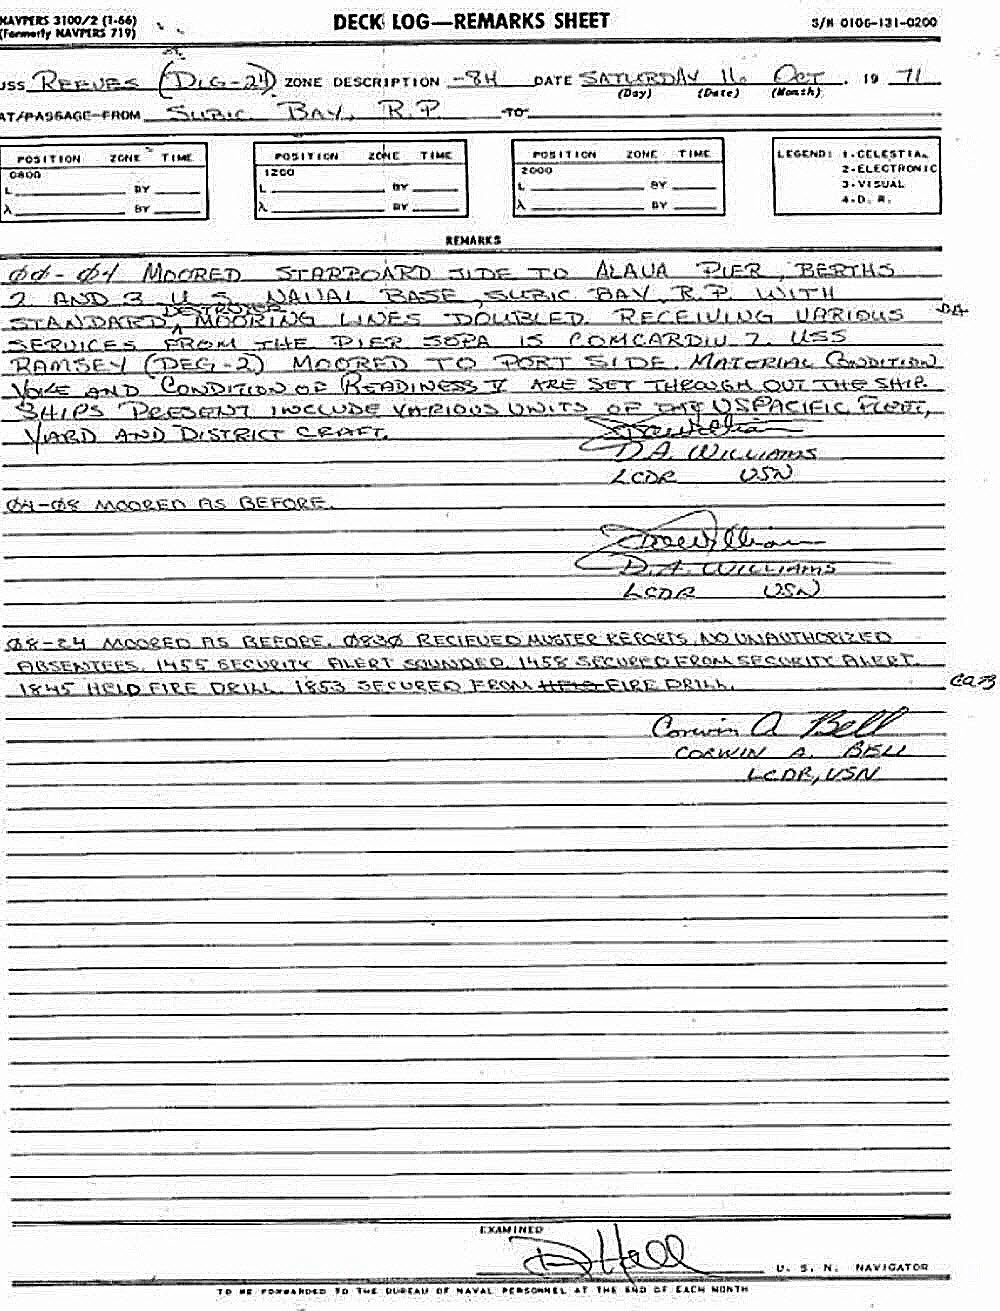 NAVPERS 3100/2 (1-66) DECK LOG—REMARKS SHEET S/N 0106-131-0200
(Formerly NAVPERS 719)
USS REEVES (DLG-24) ZONE DESCRIPTION -8H DATE SATURDAY 16 OCT. 19 71
(Day) (Date) (Month)
AT/PASSAGE-FROM SUBIC BAY, R.P. TO
POSITION ZONE TIME POSITION ZONE TIME POSITION ZONE TIME LEGEND: 1-CELESTIAL
0800 1200 2000 2-ELECTRONIC
L BY L BY L BY 3-VISUAL
λ BY λ BY λ BY 4-D. R.
REMARKS
ØØ-Ø4 MOORED STARBOARD SIDE TO ALAVA PIER, BERTHS
2 AND 3 U.S. NAVAL BASE, SUBIC BAY, R.P. WITH
DESTROYER
STANDARD ^ MOORING LINES DOUBLED. RECEIVING VARIOUS DA
SERVICES FROM THE PIER SOPA IS COMCARDIV 7. USS
RAMSEY (DEG-2) MOORED TO PORT SIDE. MATERIAL CONDITION
YOKE AND CONDITION OF READINESS V ARE SET THROUGH OUT THE SHIP.
SHIPS PRESENT INCLUDE VARIOUS UNITS OF THE US PACIFIC FLEET,
YARD AND DISTRICT CRAFT.
D.A. WILLIAMS
LCDR USN
Ø4-Ø8 MOORED AS BEFORE.
D.A. WILLIAMS
LCDR USN
Ø8-24 MOORED AS BEFORE. Ø83Ø RECIEVED MUSTER REPORTS. NO UNAUTHORIZED
ABSENTEES. 1455 SECURITY ALERT SOUNDED. 1458 SECURED FROM SECURITY ALERT.
1845 HELD FIRE DRILL. 1853 SECURED FROM HELD FIRE DRILL. CAB
Corwin A. Bell
CORWIN A. BELL
LCDR, USN
EXAMINED
D Hall
U. S. N. NAVIGATOR
TO BE FORWARDED TO THE BUREAU OF NAVAL PERSONNEL AT THE END OF EACH MONTH